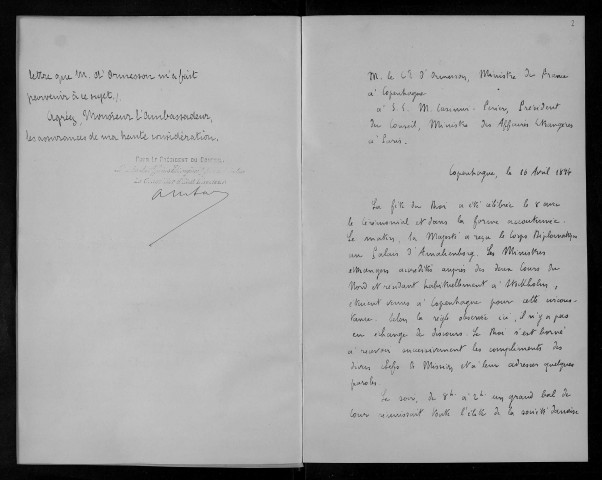 lettre que M. d'Ormesson m'a fait
parvenir à ce sujet./.
Agréez, Monsieur l'Ambassadeur,
les assurances de ma haute considération.
2
M. le Cte d'Ormesson, Ministre de France
à Copenhague
à S.E. M. Casimir-Perier, Président
du Conseil, Ministre des Affaires Etrangères
à Paris.
Copenhague, le 10 Avril 1894
La fête du Roi a été célébrée le 8 avec
le cérémonial et dans la forme accoutumée.
Le matin, Sa Majesté a reçu le Corps Diplomatique
au Palais d'Amalienborg. Les Ministres
étrangers accrédités auprès des deux Cours du
Nord et résidant habituellement à Stockholm,
étaient venus à Copenhague pour cette circons-
tance. Selon la règle observée ici, il n'y a pas
eu échange de discours. Le Roi s'est borné
à recevoir successivement les compliments des
divers chefs de Mission et à leur adresser quelques
paroles.
Le soir, de 8h à 2h un grand bal de
Cour réunissait toute l'élite de la société danoise